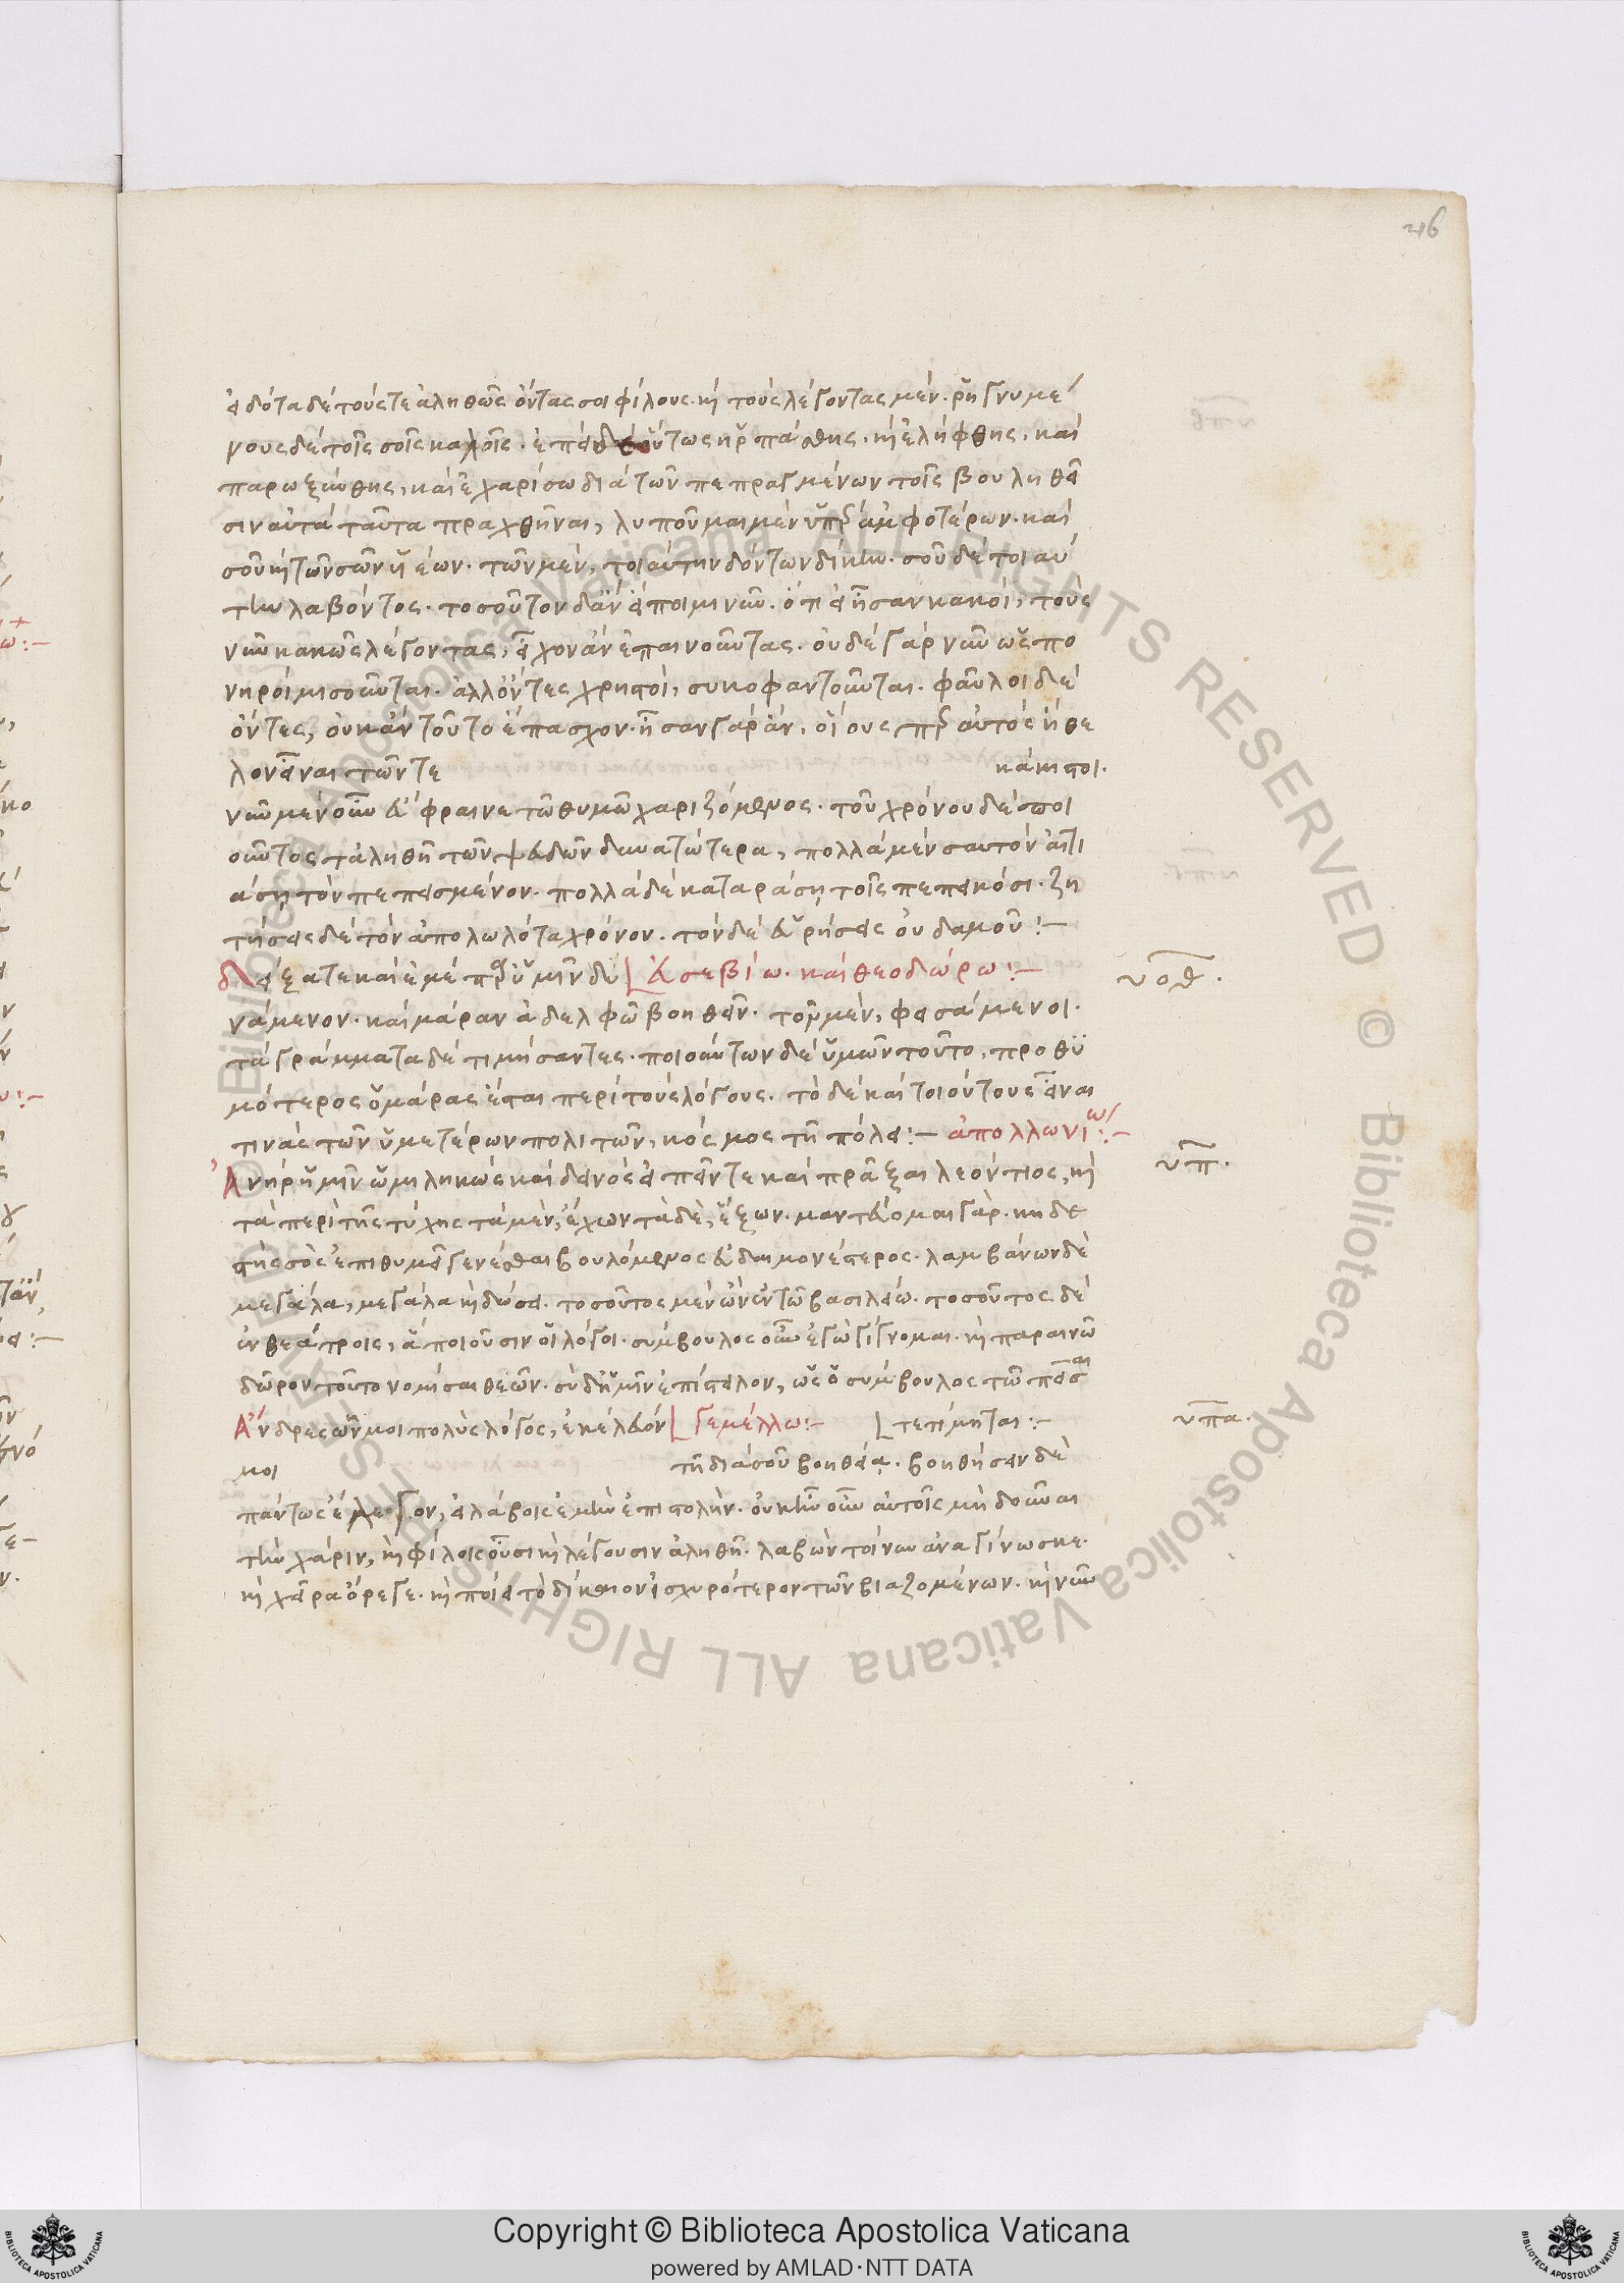 216
εἰδότα δὲ τούς τε ἀληθῶς ὄντας σοι φίλους· καὶ τοὺς λέγοντας μὲν· ῥηγνυμέ
νους δὲ τοῖς σοῖς καλοῖς· ἐπεὶ δὲ οὕτως ἡρπάσθης· καὶ ἐλήφθης· καὶ
παρωξύνθης, καὶ ἐχαρίσω διὰ τῶν πεπραγμένων τοῖς βουληθεῖ
σιν αὐτὰ ταῦτα πραχθῆναι, λυποῦμαι μὲν ὑπὲρ ἀμφοτέρων· καὶ
σοῦ καὶ τῶν σῶν υἱέων· τῶν μὲν, τοιαύτην δόντων δίκην· σοῦ δὲ τοιαύ
την λαβόντος· τοσοῦτον δ' ἂν εἴποιμι νῦν· ὅτι εἰ ἦσαν κακοί, τοὺς
νῦν κακῶς λέγοντας, εἶχον ἂν ἐπαινοῦντας· οὐδὲ γὰρ νῦν ὡς πο
νηροὶ μισοῦνται· ἀλλ' ὄντες χρηστοί, συκοφαντοῦνται· φαῦλοι δὲ
ὄντες, οὐκ ἂν τοῦτο ἔπασχον· ἦσαν γὰρ ἂν, οἵους περ αὐτὸς ἤθε
λον εἶναι τῶν τε κάκιστοι·
νῦν μὲν οὖν εὔφραινε τῷ θυμῷ χαριζόμενος· τοῦ χρόνου δὲ ποι
οῦντος τἀληθῆ τῶν ψευδῶν δυνατώτερα, πολλὰ μὲν σαυτὸν αἰτι
άσῃ τὸν πεπεισμένον· πολλὰ δὲ καταράσῃ τοῖς πεπεικόσι· ζη
τήσεις δὲ τὸν ἀπολωλότα χρόνον· τὸν δὲ εὑρήσεις οὐδαμοῦ :–
δείξατε καὶ ἐμὲ παρ' ὑμῖν δυ Εὐσεβίω· καὶ θεοδώρω :– υοθ·
νάμενον· καὶ μάραν ἀδελφῷ βοηθεῖν· τοῦ μὲν, φεισάμενοι·
τὰ γράμματα δὲ τιμήσαντες· ποιούντων δὲ ὑμῶν τοῦτο, προθυ
μότερος ὁ μάρας ἔσται περὶ τοὺς λόγους· τὸ δὲ καὶ τοιούτους εἶναι
τινὰς τῶν ὑμετέρων πολιτῶν, κόσμος τῇ πόλει :– ἀπολλωνίω :–
Ἀνὴρ ἡμῖν ὡμιληκὼς καὶ δεινὸς εἰπεῖν τε καὶ πρᾶξαι λεόντιος, καὶ υπ·
τὰ περὶ τῆς τύχης τὰ μὲν, ἔχων τὰ δὲ, ἕξων· μαντεύομαι γὰρ· κηδε
στὴς σὸς ἐπιθυμεῖ γενέσθαι βουλόμενος εὐδαιμονέστερος· λαμβάνων δὲ
μεγάλα, μεγάλα καὶ δώσει· τοσοῦτος μὲν ὢν ἐν τῷ βασιλείω· τοσοῦτος δὲ
ἐν θεάτροις, ἃ ποιοῦσιν οἱ λόγοι· σύμβουλος οὖν ἐγὼ γίγνομαι· καὶ παραινῶ
δῶρον τοῦτο νομίσαι θεῶν· σὺ δ' ἡμῖν ἐπίστειλον, ὡς ὁ σύμβουλος τῷ πεῖσαι
Ἄνδρες ὧν μοι πολὺς λόγος, ἐκέλευόν Γεμέλλω :– τετίμηται :– υπα·
μοι τῇ διὰ σοῦ βοηθείᾳ· βοηθήσειν δὲ
πάντως ἔλεγον, εἰ λάβοις ἐμὴν ἐπιστολήν· οὐκ ἦν οὖν αὐτοῖς μὴ δοῦναι
τὴν χάριν, καὶ φίλοις οὖσι καὶ λέγουσιν ἀληθῆ· λαβὼν τοίνυν ἀναγίνωσκε·
καὶ χεῖρα ὄρεγε· καὶ ποίει τὸ δίκαιον ἰσχυρότερον τῶν βιαζομένων· καὶ νῦν
Biblioteca Apostolica Vaticana ALL RIGHTS RESERVED © Biblioteca Apostolica Vaticana ALL RIGHTS RESERVED ©
Copyright © Biblioteca Apostolica Vaticana
powered by AMLAD·NTT DATA
BIBLIOTECA APOSTOLICA VATICANA
BIBLIOTECA APOSTOLICA VATICANA